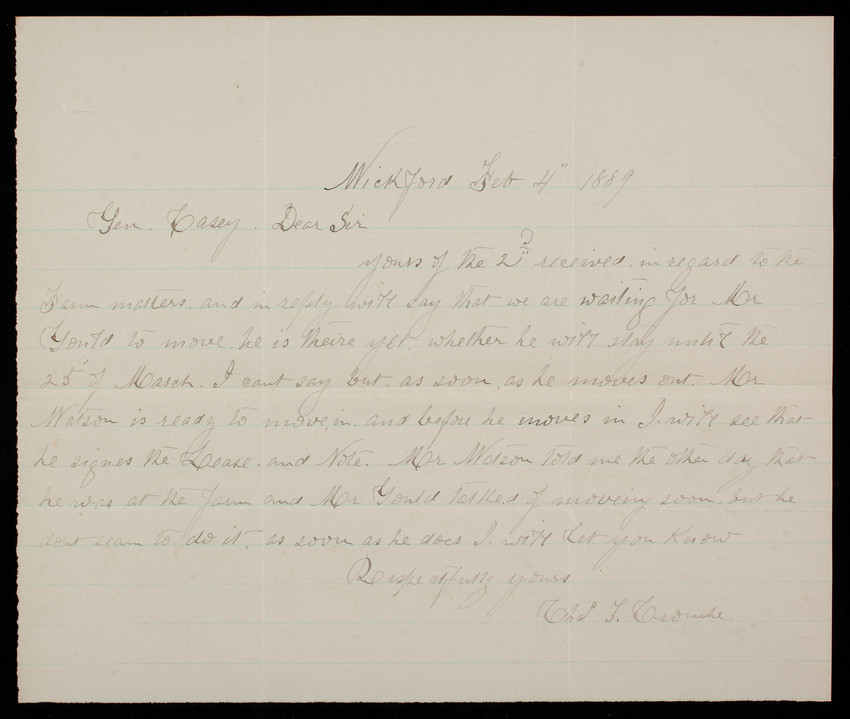 Wickford Feb 4" 1889
Gen. Casey. Dear Sir
yours of the 2" received. in regard to the
Farm matters. and in reply will say that we are waiting for Mr
Gould to move. he is theire yet. whether he will stay until the
25" of March. I cant say but. as soon as he moves out. Mr
Watson is ready to move in. and before he moves in I will see that
he signes the Lease. and Note. Mr Watson told me the other day that
he was at the farm and Mr Gould talked of moveing soon. but he
dont seam to do it. as soon as he does I will Let you Know
Respectfully yours
Thos F.